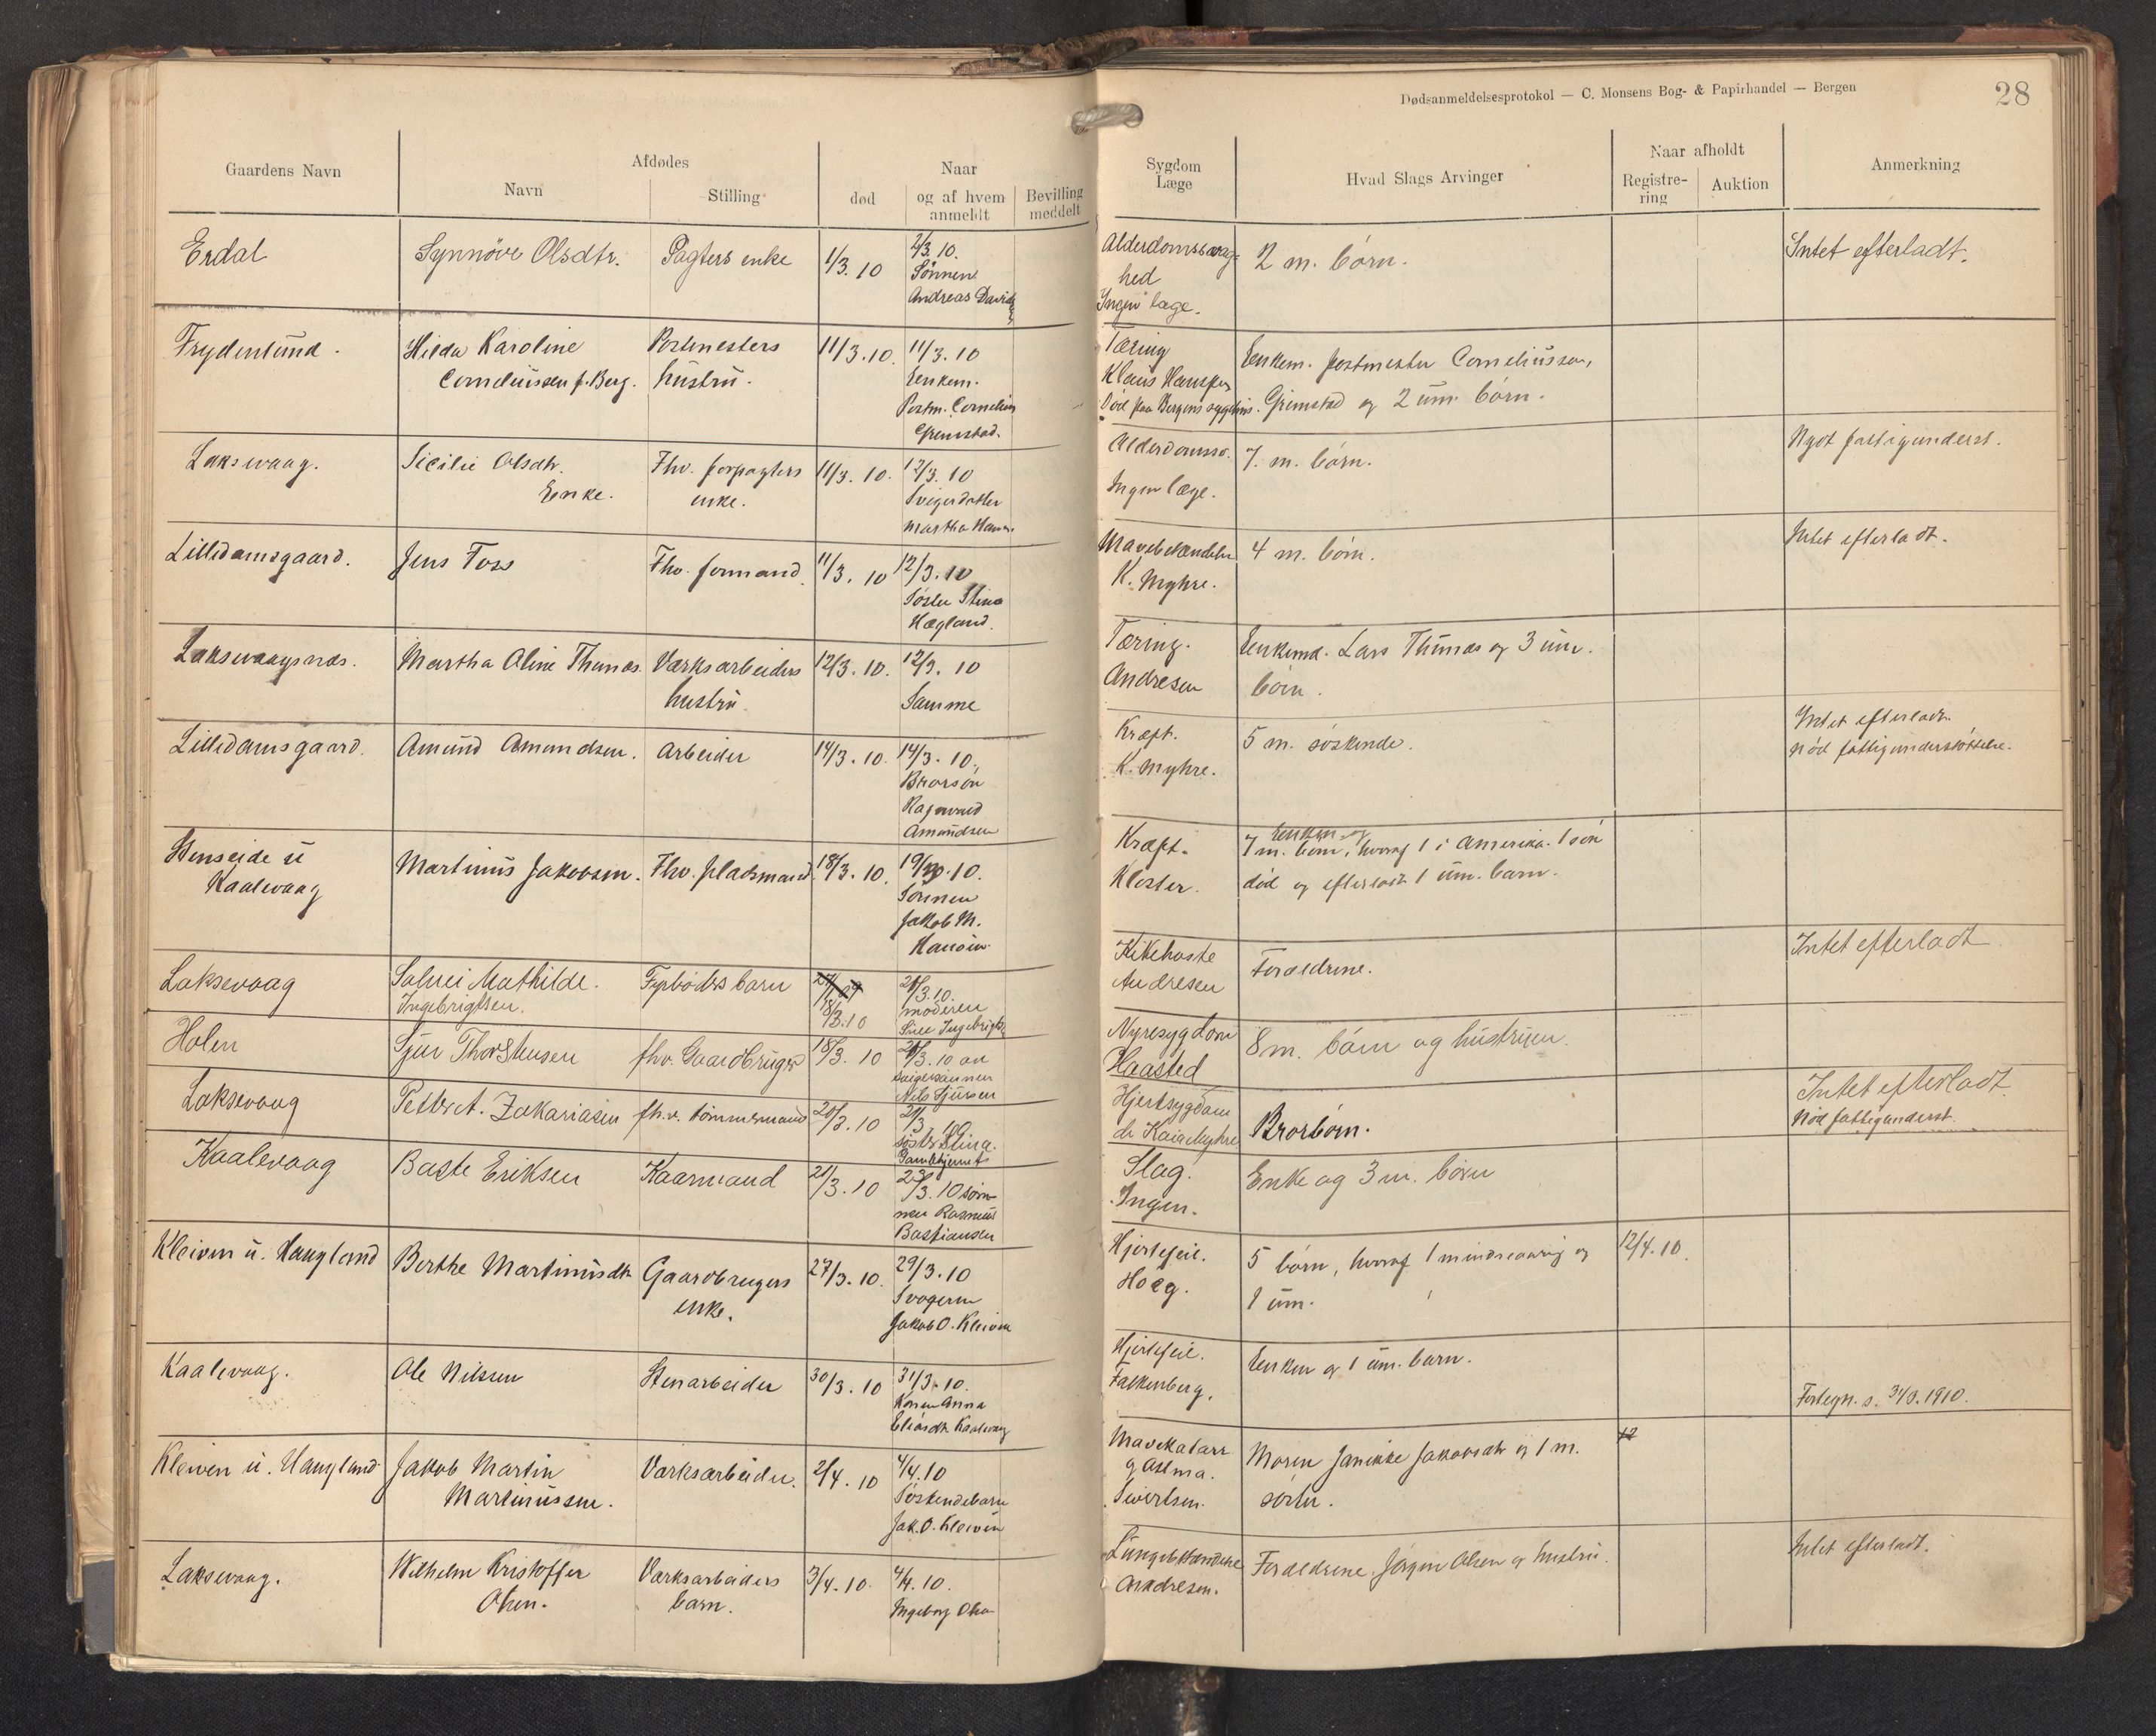 Dødsanmeldelsesprotokol — C. Monsens Bog- & Papirhandel — Bergen
28
Gaardens Navn
Afdødes
Navn
Stilling
Naar
død
og af hvem anmeldt
Bevilling meddelt
Sygdom
Læge
Hvad Slags Arvinger
Naar afholdt
Registrering
Auktion
Anmerkning
Erdal
Synnöve Olsdtr.
Pagters enke
1/3. 10
2/3. 10.
Sönnen
Andreas Davids
Alderdomssvag-
hed
Ingen læge.
2 m. börn.
Intet efterladt.
Frydenlund.
Hilda Karoline
Corneliussen f. Berg.
Postmesters
hustru.
11/3. 10.
11/3. 10
Enkem.
Postm. Cornelius
Grimstad.
Tæring
Klaus Hanssen
Död paa Bergens sygehus.
Enkem. postmester Corneliussen,
Grimstad og 2 um. börn.
Laksevaag.
Sicilie Olsdtr.
Enke.
Fhv. forpagters
enke.
11/3. 10.
12/3. 10
Svigerdatter
Martha Hans.
Alderdomssv.
Ingen læge.
7. m. börn.
Nydt fattigunderst.
Lilledamsgaard.
Jens Foss
Fhv. formand.
11/3. 10
12/3. 10
Söster Stina
Hægland.
Mavebetændelse
K. Myhre.
4 m. börn.
Intet efterladt.
Laksevaagsnæs.
Martha Aline Thunæs.
Værksarbeiders
hustru
12/3. 10.
12/3. 10
Samme
Tæring.
Andresen
Enkemd. Lars Thunæs og 3 um.
börn.
Lilledamsgaard.
Amund Amundsen.
Arbeider
14/3. 10.
14/3. 10.
Brorsön
Ragnvald
Amundsen
Kræft.
K. Myhre.
5 m. söskende.
Intet efterladt.
Nöd fattigunderstöttelse.
Stenseide u
Kaalevaag
Martinus Jakobsen.
Fhv. pladsmand.
18/3. 10.
19/3. 10.
Sönnen
Jakob M.
Hausen.
Kræft.
Kloster.
Enken og
7 m. börn, hvoraf 1 i Amerika. 1 sön
död og efterladt 1 um. barn.
Laksevaag
Solvei Mathilde.
Ingebrigtsen.
Fyrböders barn
18/3. 10
21/3. 10.
moderen
Sine Ingebrigts.
Kikehoste
Andresen
Forældrene.
Intet efterladt
Holen
Sjur Thorstensen
fhv. Gaardbruger
18/3. 10
21/3. 10 av
svigersönnen
Nils Sjursen
Nyresygdom
Haasted
8 m. börn og hustruen.
Laksevaag
Petter A. Zakariasen
fh.v. tömmermand
20/3. 10
21/3 10
söster Stina.
Gamlehjemmet
Hjertesygdom
dr Kaia Myhre
Brorbörn.
Intet efterladt.
Nöd fattigunderst.
Kaalevaag
Baste Eriksen
Kaarmand
21/3. 10
23/3. 10 sön-
nen Rasmus
Bastiansen
Slag.
Ingen.
Enke og 3 m. börn
Kleiven u. Haugland
Berthe Martinusdtr
Gaardbrugers
enke.
27/3. 10.
29/3. 10
Svogeren
Jakob O. Kleiven
Hjertefeil.
Hoeg.
5 börn, hvoraf 1 mindreaarig og
1 um.
12/4. 10.
Kaalevaag.
Ole Nilssen
Stenarbeider
30/3. 10
31/3. 10.
Konen Anna
Eliasdtr. Kaalevaag
Hjertefeil.
Falkenberg.
Enken og 1 um. barn.
Fortegn. s. 31/3. 1910.
Kleiven u. Haugland
Jakob Martin
Martinussen.
Værksarbeider.
2/4. 10
4/4. 10
Söskendebarn
Jak. O. Kleiven
Mavekatarr
og Astma.
Sivertsen.
Moren Janikke Jakobsdtr og 1 m.
söster.
12
Laksevaag.
Wilhelm Kristoffer
Olsen.
Værksarbeiders
barn.
3/4. 10.
4/4. 10.
Ingeborg Olsen
Lungebetændelse
Andresen.
Forældrene. Jörgen Olsen og hustru.
Intet efterladt.